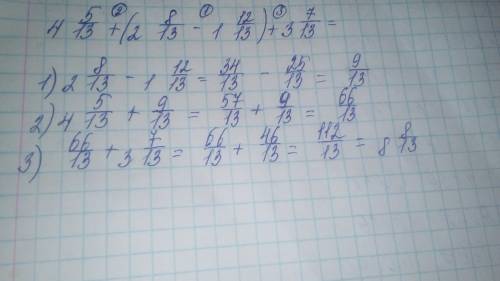 4 5/13 +② (2 8/13 -① 1 12/13) +③ 3 7/13 =
1) 2 8/13 - 1 12/13 = 34/13 - 25/13 = 9/13
2) 4 5/13 + 9/13 = 57/13 + 9/13 = 66/13
3) 66/13 + 3 7/13 = 66/13 + 46/13 = 112/13 = 8 8/13